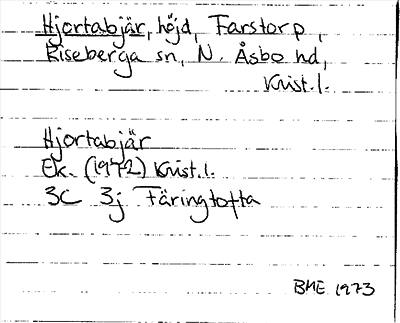 Hjortabjär, höjd, Farstorp,
Riseberga sn, N. Åsbo hd,
Krist.l.
Hjortabjär
Ek. (1972) Krist.l.
3C 3j Färingtofta
BME 1973